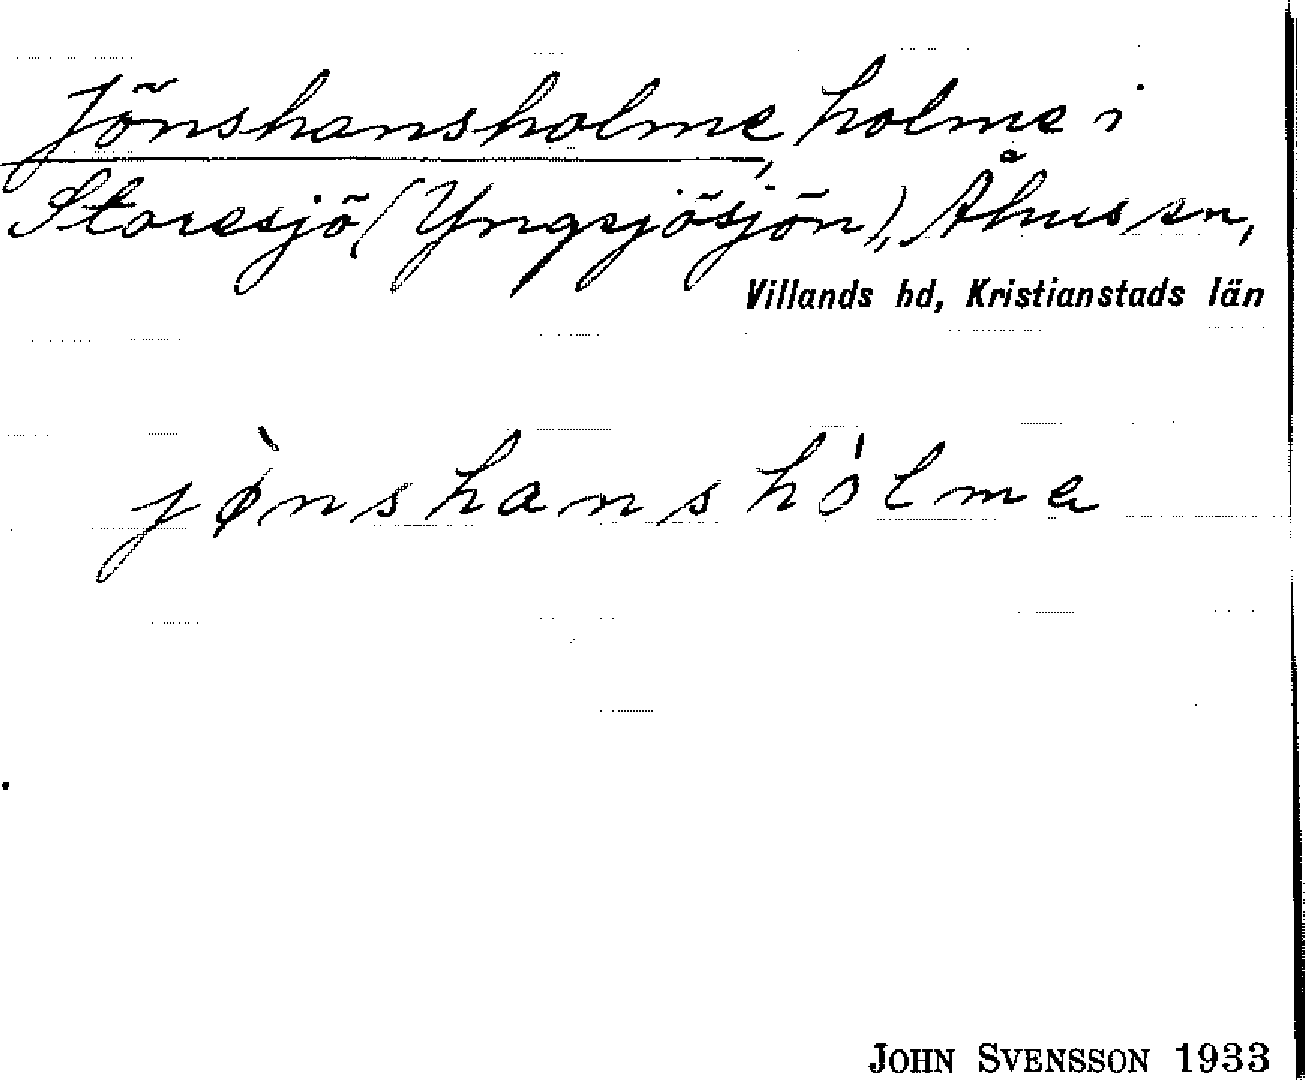 Jönshansholme, holme i
Storesjö (Yngsjösjön), Åhus sn,
Villands hd, Kristianstads län
jø̀nshanshólmə
JOHN SVENSSON 1933